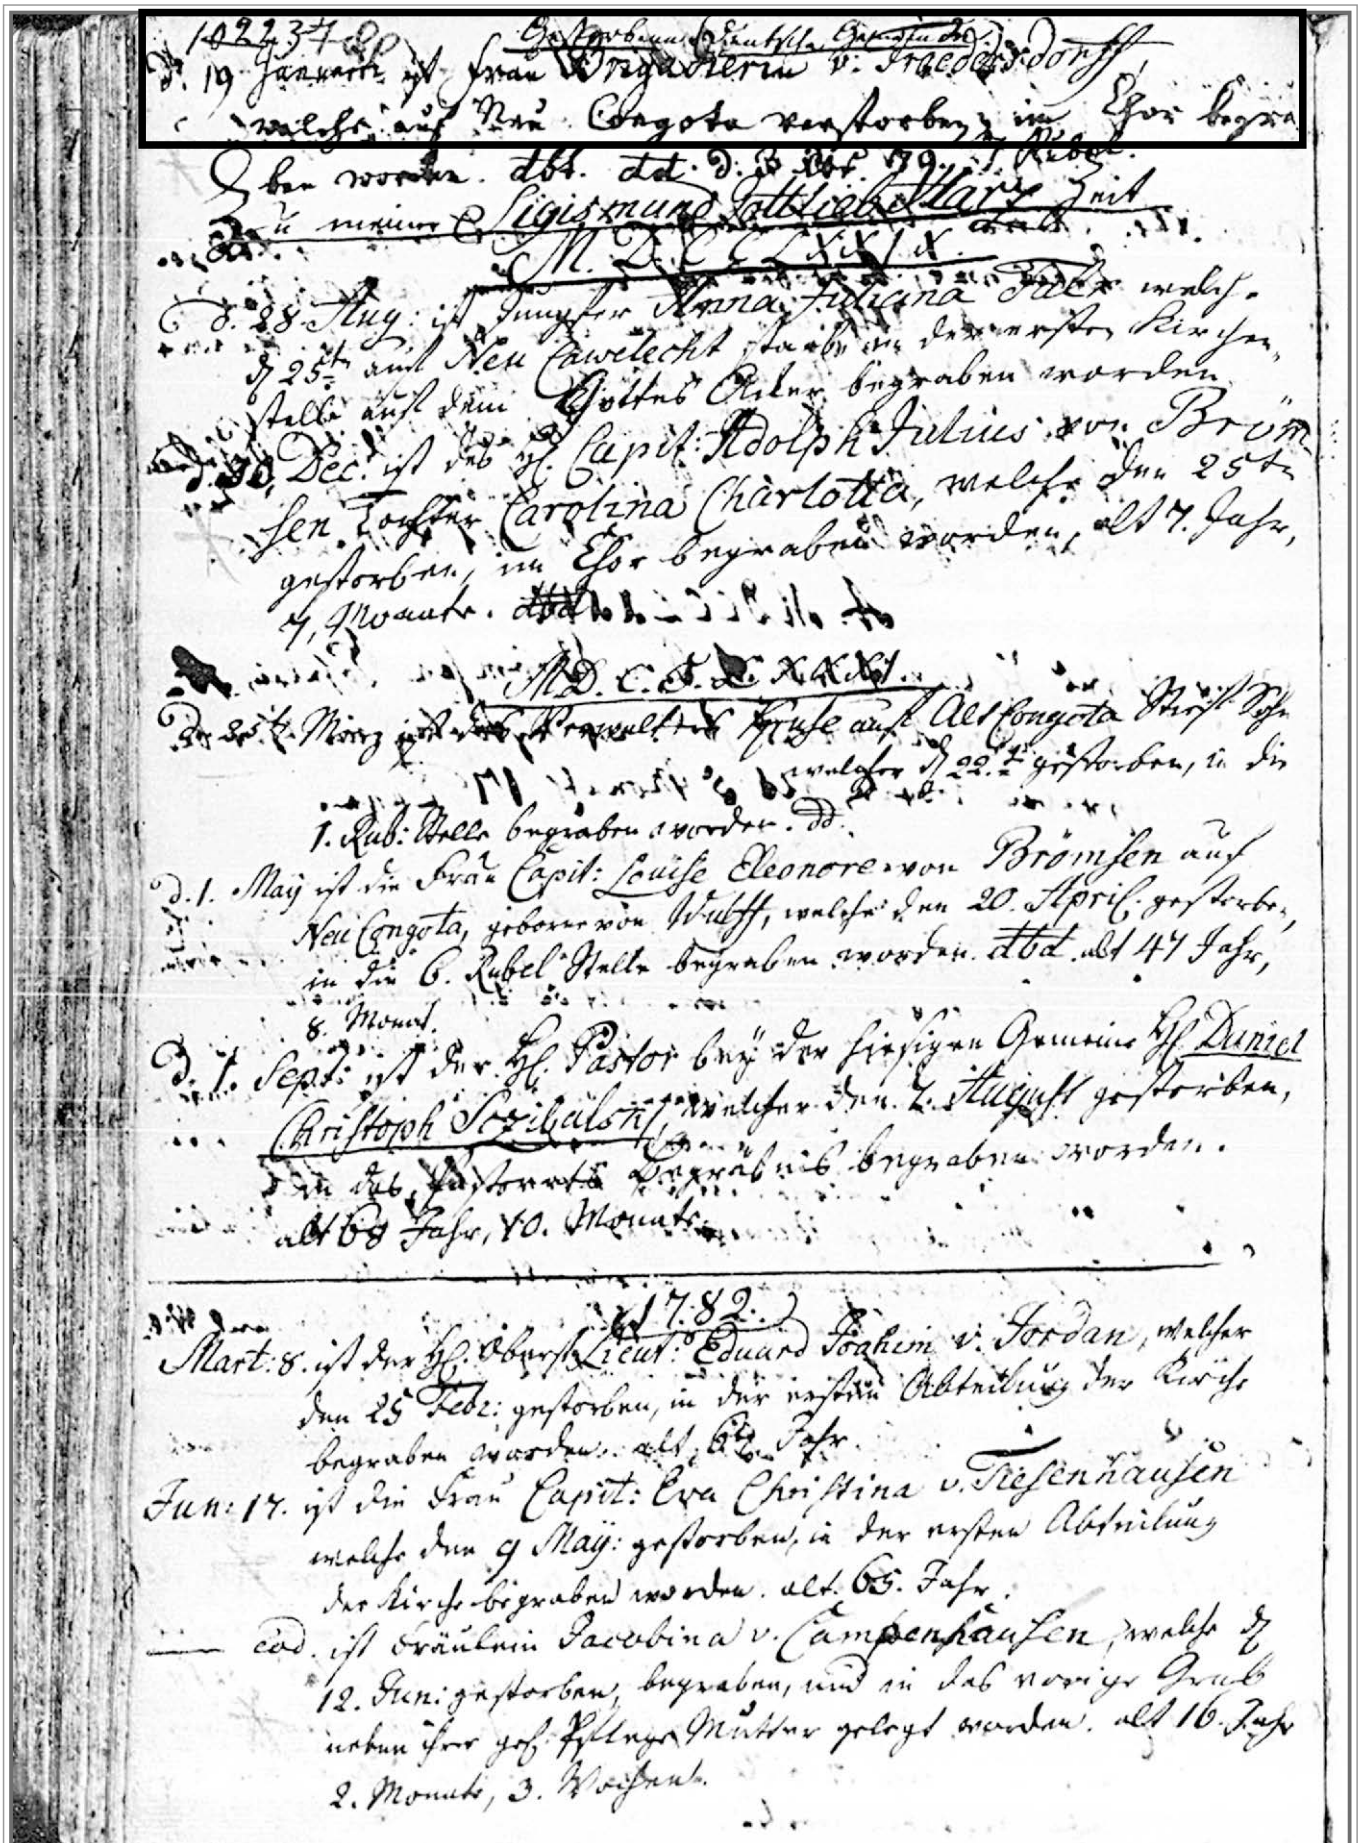 Gestorbene Deutsche Gemeinde
d. 19 Januarii ist Frau Brigadierin v.
welche auf Neu Congota verstorben, im Chor begra
ben worden. dbt. dd. d. 7 Rubel.
Zu meiner Sigismund Gottlieb Zeit
d. 28 Aug: ist Jungfer Anna Juliana welche
d 25te auf Neu starb in der ersten Kirchen-
stelle auf dem Gottes Acker begraben worden
d. 30. Dec. ist des H. Capit: Adolph Julius von Bröm
sen Tochter Carolina Charlotta, welche den 25te
gestorben, im Chor begraben worden, alt 7. Jahr,
Monate. dbd
d. 25t. Merz ist des Verwalters Kruse auf Alt Congota Stief Sohn
welcher d 22.t gestorben, in die
1. Rub: Stelle begraben worden. dd.
d. 1. May ist die Frau Capit: Louise Eleonore von Brömsen auf
Neu Congota, geborne von Wulff, welche den 20. April. gestorben,
in die 6. Rubel Stelle begraben worden. dbd. alt 47 Jahr,
8. Monat.
d. 1. Sept: ist der H. Pastor bey der hiesigen Gemeine H. Daniel
Christoph welcher den 7. August gestorben,
in das Pastorats Begräbnis begraben worden.
alt 68 Jahr, 10. Monate.
1782.
Mart: 8. ist der H. Oberst Lieut: Eduard Joahim v. Jordan, welcher
den 25 Febr: gestorben, in der ersten Abteilung der Kirche
begraben worden. alt Jahr.
Jun: 17. ist die Frau Capit: Eva Christina v. Tiesenhausen
welche den 9 May: gestorben, in der ersten Abteilung
der Kirche begraben worden. alt. 65. Jahr.
eod. ist Fräulein Jacobina v. Campenhausen, welche d
12. Jun: gestorben, begraben, und in das vorige Grab
neben ihrer gel. Pflege Mutter gelegt worden. alt 16. Jahr
2. Monate, 3. Wochen.